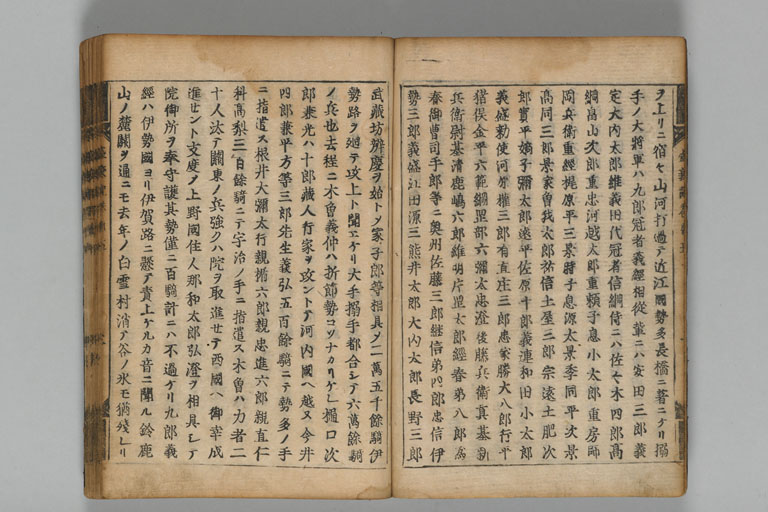 ヲ上リニ宿々山河打過テ近江國勢多長橋ニ著ニケリ搦
手ノ大將軍ハ九郎冠者義經相從輩ニハ安田三郎義
定大内太郎維義田代冠者信綱侍ニハ佐々木四郎高
綱畠山次郎重忠河越太郎重頼子息小太郎重房師
岡兵衛重經梶原平三景時子息源太景季同平次景
高同三郎景家曽我太郎祐信土屋三郎宗遠土肥次
郎實平嫡子彌太郎遠平佐原十郎義連和田小太郎
義盛勅使河原權三郎有直庄三郎忠家勝大八郎行平
猪俣金平六範綱岡部六彌太忠澄後藤兵衛真基新
兵衛尉基清鹿嶋六郎維明片岡太郎經春弟八郎為
春御曹司手郎等ニ奥州佐藤三郎継信弟四郎忠信伊
勢三郎義盛江田源三熊井太郎大内太郎長野三郎
武藏坊辨慶ヲ始トメ家子郎等相具メ二萬五千餘騎伊
勢路ヲ廻テ攻上ト聞エケリ大手搦手都合シテ六萬餘騎
ノ兵也去程ニ木曽義仲ハ折節勢コソナカリケレ樋口次
郎兼光ハ十郎藏人行家ヲ攻ントテ河内國ヘ越ヌ今井
四郎兼平方等三郎先生義弘五百餘騎ニテ勢多ノ手
ニ指遣ス根井大彌太行親楯六郎親忠進六郎親直仁
科高梨三百餘騎ニテ宇治ノ手ニ指遣ス木曽ハ力者二
十人汰テ關東ノ兵強クハ院ヲ取進セテ西國ヘ御幸成
進セント支度メ上野國住人那和太郎弘澄ヲ相具シテ
院御所ヲ奉守護其勢僅ニ百騎計ニハ不過ケリ九郎義
經ハ伊勢國ヨリ伊賀路ニ懸テ責上ケルカ音ニ聞ル鈴鹿
山ノ麓關ヲ過ニモ去年ノ白雪村消テ谷ノ氷モ猶殘レリ